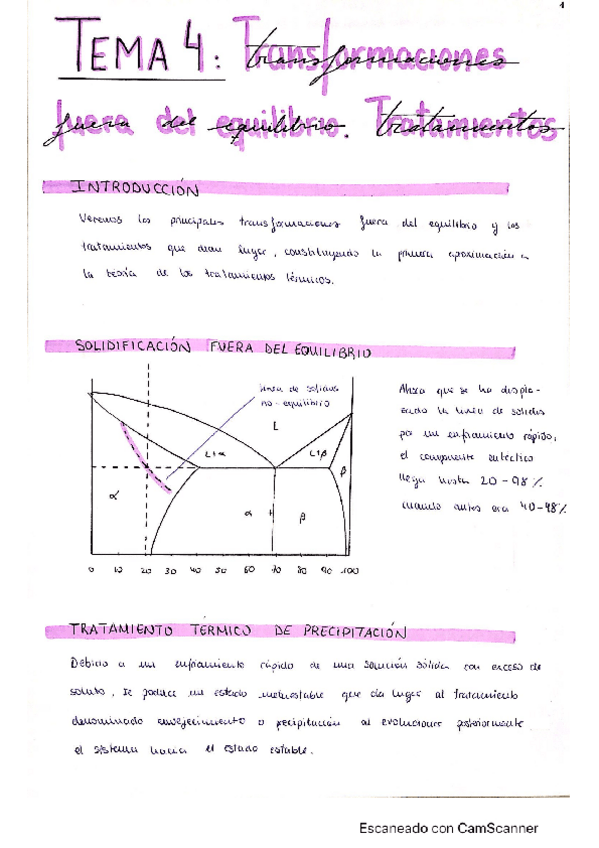 4
TEMA 4: Transformaciones
fuera del equilibrio. Tratamientos
INTRODUCCIÓN
Veremos las principales transformaciones fuera del equilibrio y los
tratamientos que dan lugar, constituyendo la primera aproximación a
la teoría de los tratamientos térmicos.
SOLIDIFICACIÓN FUERA DEL EQUILIBRIO
línea de solidus
no-equilibrio
L
L+α
L+β
β
α
α + β
0 10 20 30 40 50 60 70 80 90 100
Ahora que se ha despla-
zado la línea de solidus
por un enfriamiento rápido,
el componente eutéctico
llega hasta 20-98%
cuando antes era 40-98%
TRATAMIENTO TÉRMICO DE PRECIPITACIÓN
Debido a un enfriamiento rápido de una solución sólida con exceso de
soluto, se produce un estado metaestable que da lugar al tratamiento
denominado envejecimiento o precipitación al evolucionar posteriormente
el sistema hacia el estado estable.
Escaneado con CamScanner